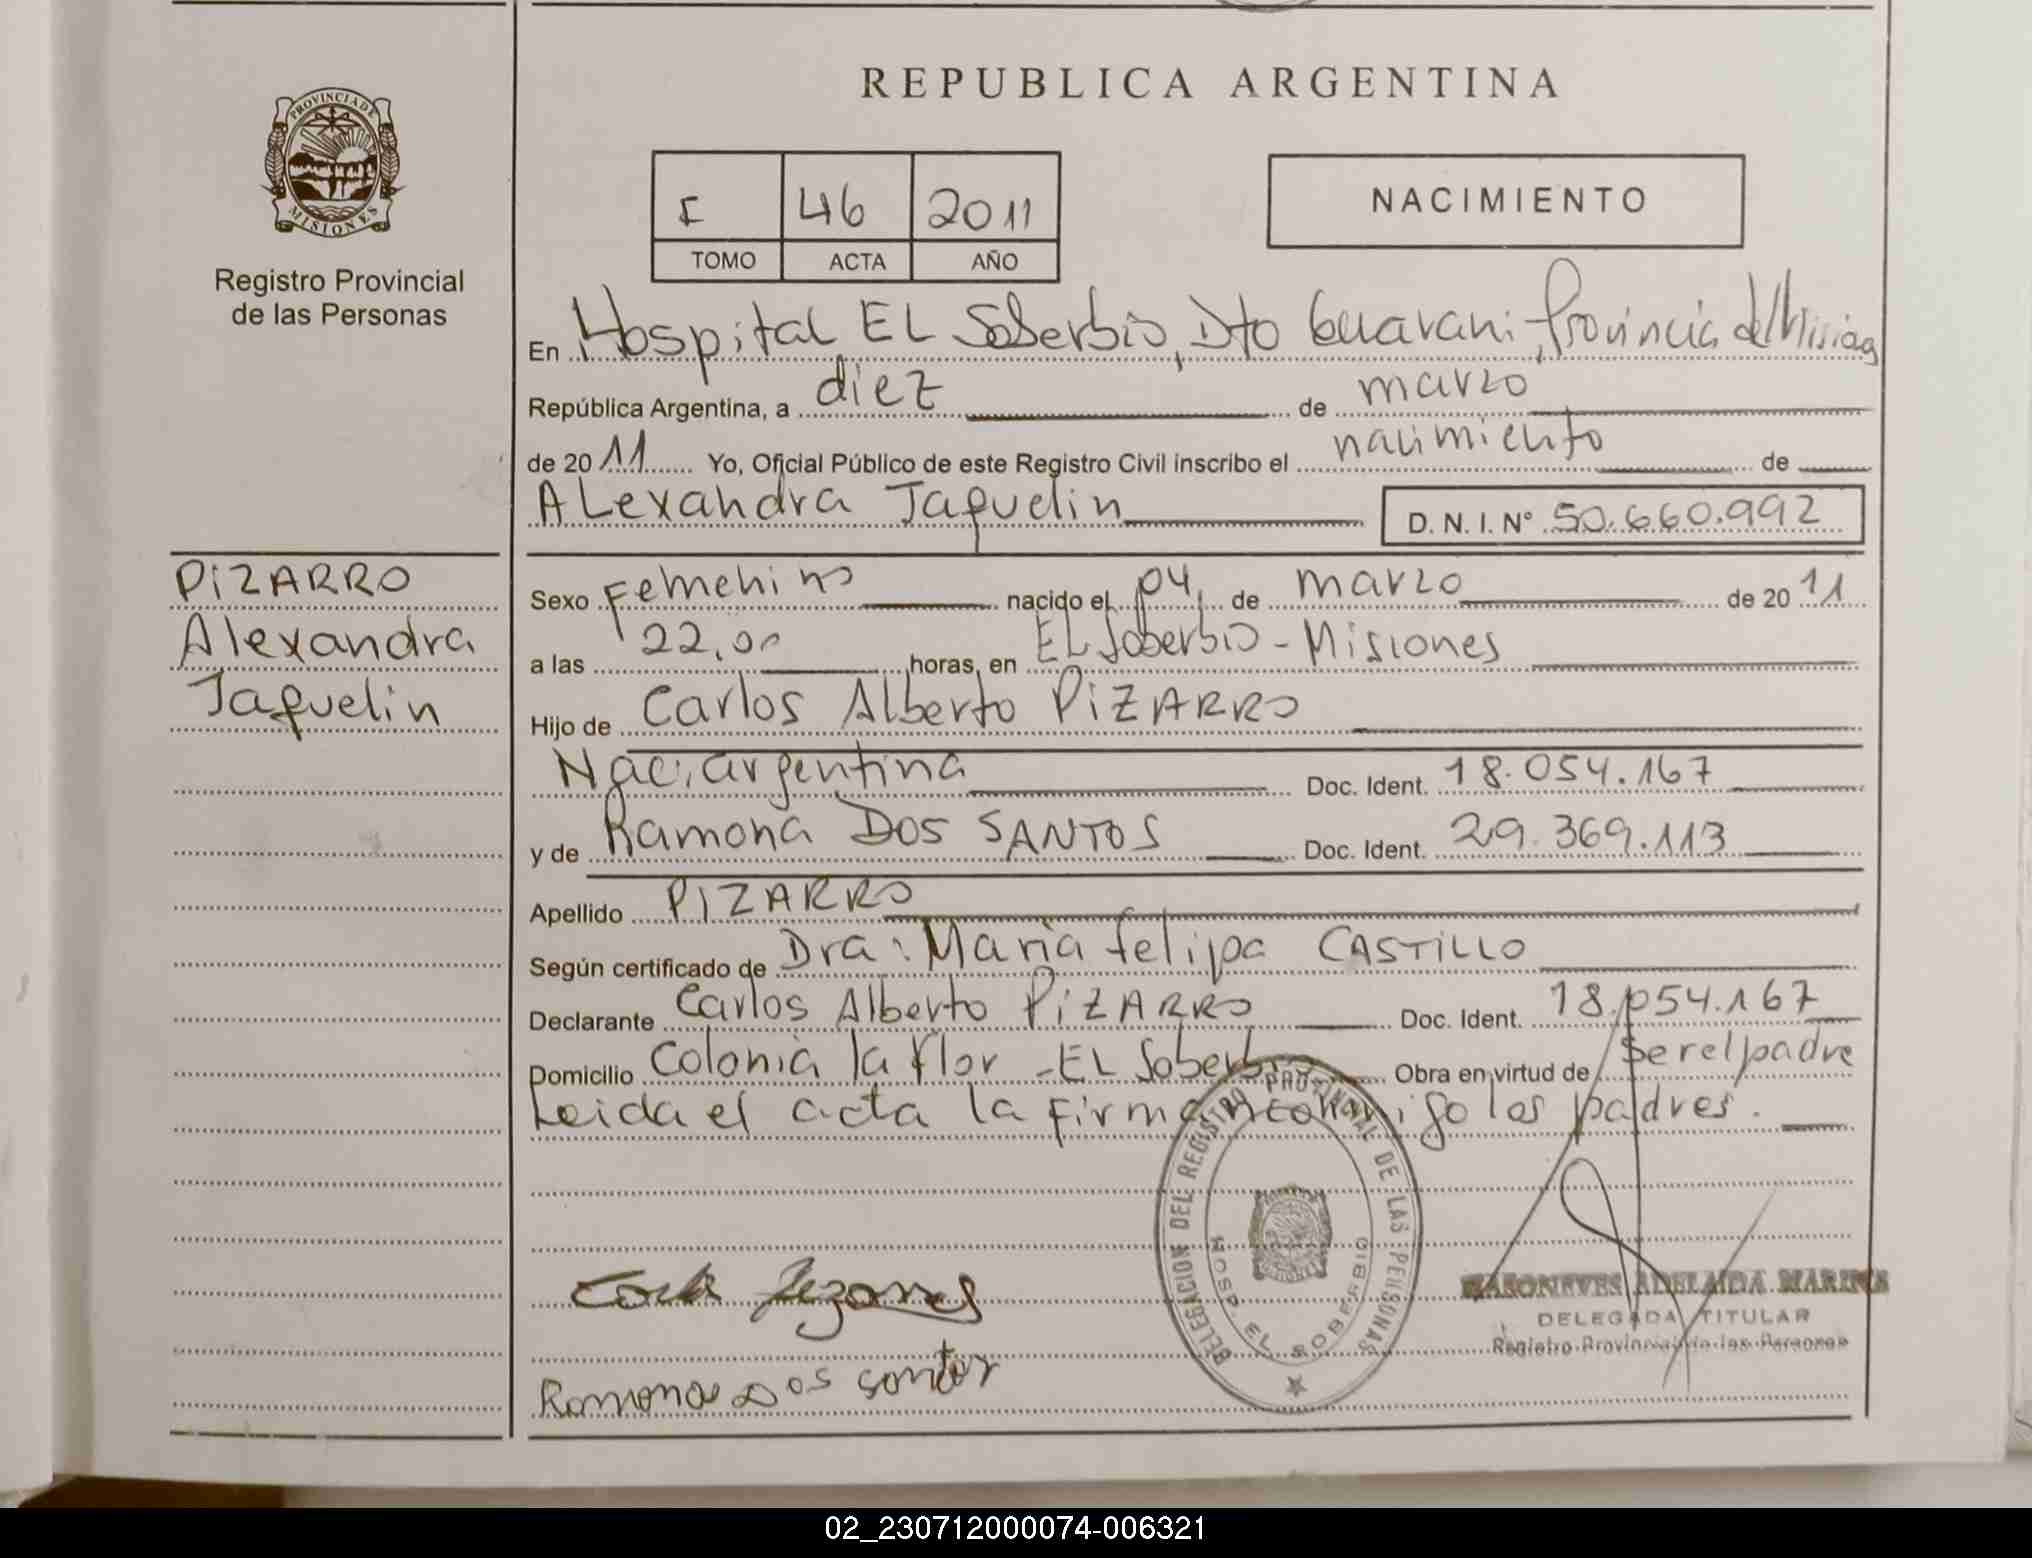 REPUBLICA ARGENTINA
PROVINCIA DE
MISIONES
Registro Provincial
de las Personas
I 46 2011
TOMO ACTA AÑO
NACIMIENTO
En Hospital EL Soberbio, Dto Guarani, Provincia de Misiones
República Argentina, a diez de marzo
de 2011 Yo, Oficial Público de este Registro Civil inscribo el nacimiento de
ALexandra Jaquelin D. N. I. N° 50.660.992
PiZARRO
Alexandra
Jaquelin
Sexo Femenino nacido el 04 de marzo de 2011
a las 22,00 horas, en EL Soberbio - Misiones
Hijo de Carlos Alberto PiZARRO
Nac. argentina Doc. Ident. 18.054.167
y de Ramona DOS SANTOS Doc. Ident. 29.369.113
Apellido PIZARRO
Según certificado de Dra: Maria felipa CASTILLO
Declarante Carlos Alberto PiZARRO Doc. Ident. 18.054.167
Domicilio Colonia la flor - EL Soberbio Obra en virtud de ser el padre
Leida el acta la firman conmigo los padres.
DELEGACION DEL REGISTRO PROVINCIAL DE LAS PERSONAS
HOSP. EL SOBERBIO
ADELAIDA
DELEGADA TITULAR
Registro Provincial de las Personas
Ramona Dos santos
02_230712000074-006321